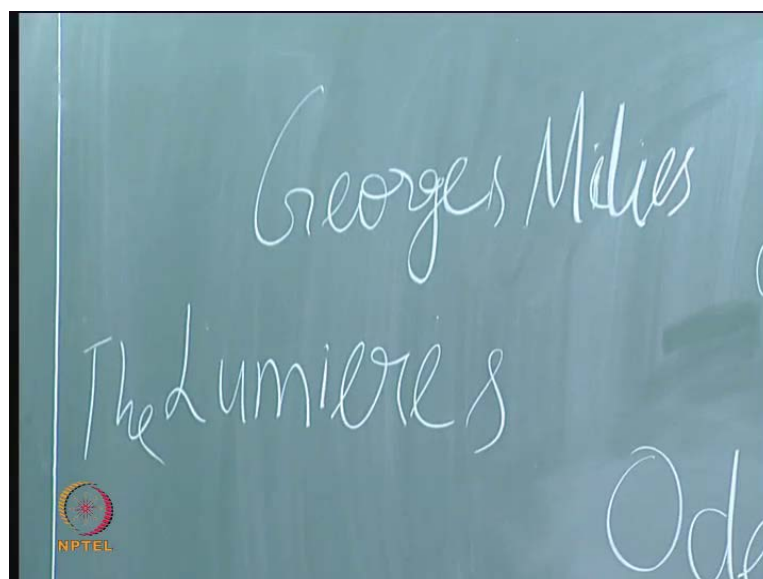 Georges Milies
The Lumieres
Ode
NPTEL